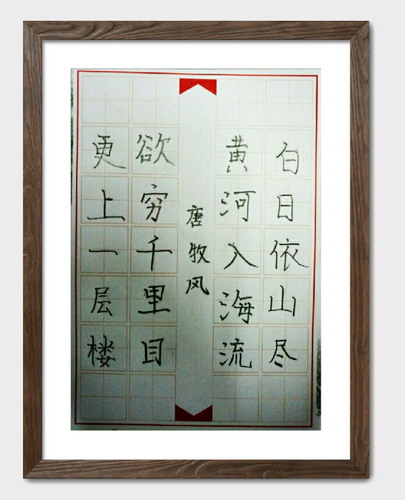 白日依山尽
黄河入海流
唐牧风
欲穷千里目
更上一层楼